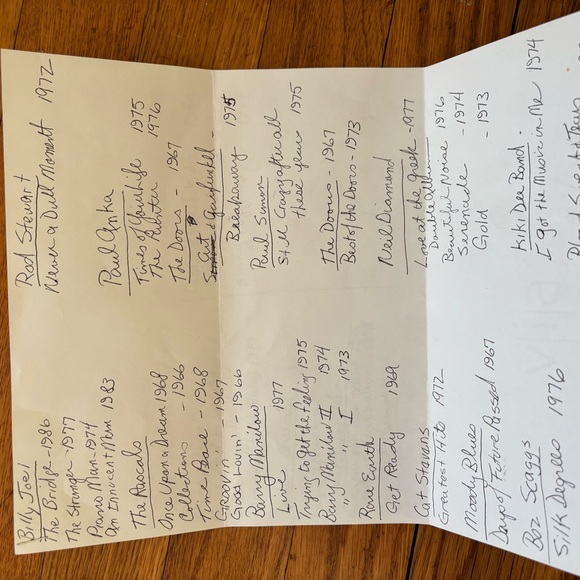 Billy Joel
The Bridge - 1986
The Stranger - 1977
Piano Man - 1974
An Innocent Man 1983
The Rascals
Once Upon a Dream 1968
Collections - 1966
Time Peace - 1968
Groovin' - 1967
Good Lovin' - 1966
Barry Manilow
Live 1977
Trying to get the Feeling 1975
Barry Manilow II 1974
" I 1973
Rare Earth
Get Ready 1969
Cat Stevens
Greatest Hits 1972
Moody Blues
Days of Future Passed 1967
Boz Scaggs
Silk Degrees 1976
Rod Stewart
Never a Dull Moment 1972
Paul Anka
Times of Your Life 1975
The Painter 1976
The Doors - 1967
Art Garfunkel -
Breakaway 1975
Paul Simon
Still Crazy after all
these years 1975
The Doors - 1967
Best of the Doors - 1973
Neil Diamond
Love at the Greek - 1977
Double Album
Beautiful Noise 1976
Serenade - 1974
Gold - 1973
Kiki Dee Band -
I got the Music in Me 1974